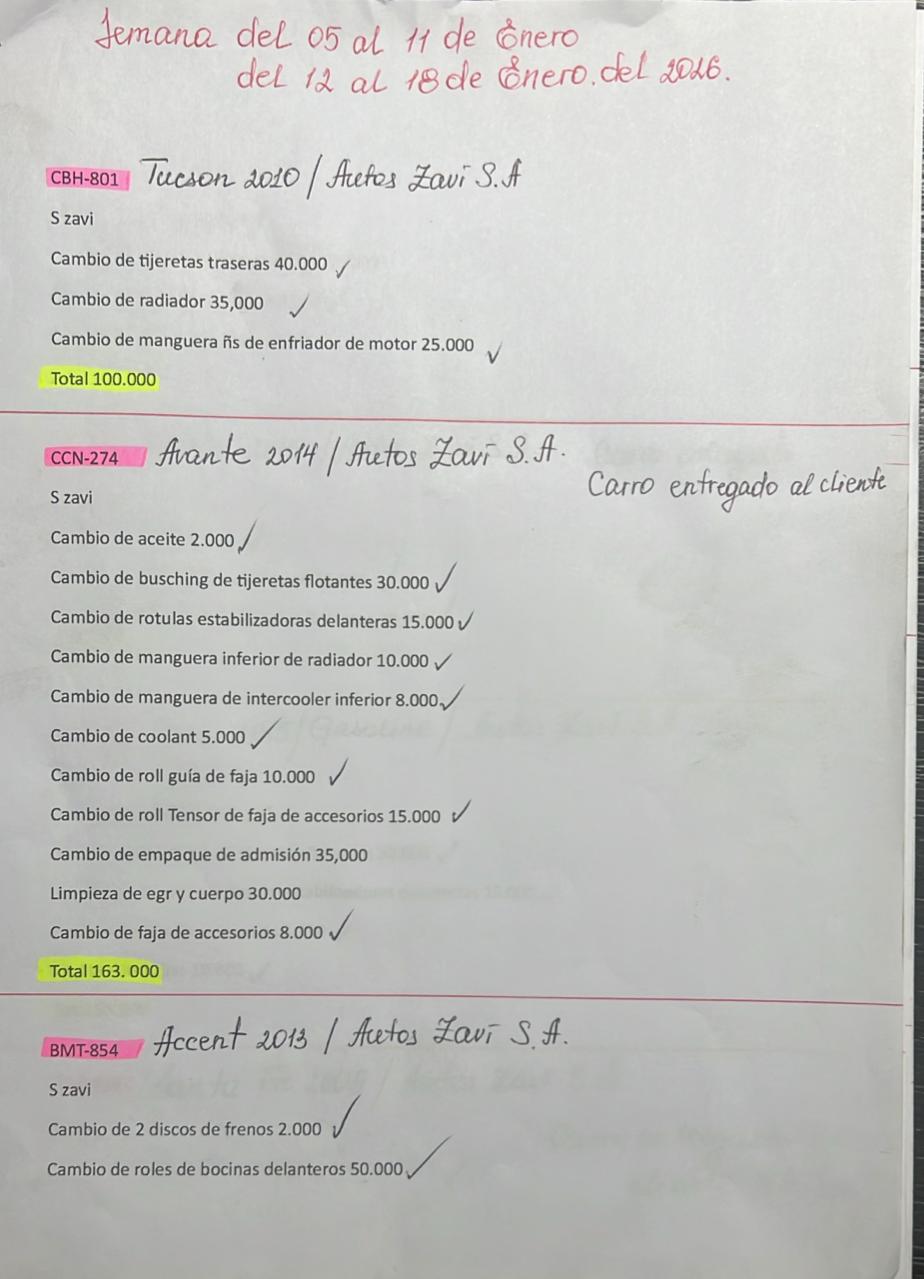 Semana del 05 al 11 de Enero
del 12 al 18 de Enero. del 2026.
CBH-801 Tucson 2010 / Autos Zavi S.A
S zavi
Cambio de tijeretas traseras 40.000 ✓
Cambio de radiador 35,000 ✓
Cambio de manguera ñs de enfriador de motor 25.000 ✓
Total 100.000
CCN-274 Avante 2014 / Autos Zavi S.A.
Carro entregado al cliente
S zavi
Cambio de aceite 2.000 ✓
Cambio de busching de tijeretas flotantes 30.000 ✓
Cambio de rotulas estabilizadoras delanteras 15.000 ✓
Cambio de manguera inferior de radiador 10.000 ✓
Cambio de manguera de intercooler inferior 8.000 ✓
Cambio de coolant 5.000 ✓
Cambio de roll guía de faja 10.000 ✓
Cambio de roll Tensor de faja de accesorios 15.000 ✓
Cambio de empaque de admisión 35,000
Limpieza de egr y cuerpo 30.000
Cambio de faja de accesorios 8.000 ✓
Total 163. 000
BMT-854 Accent 2013 / Autos Zavi S.A.
S zavi
Cambio de 2 discos de frenos 2.000 ✓
Cambio de roles de bocinas delanteros 50.000 ✓